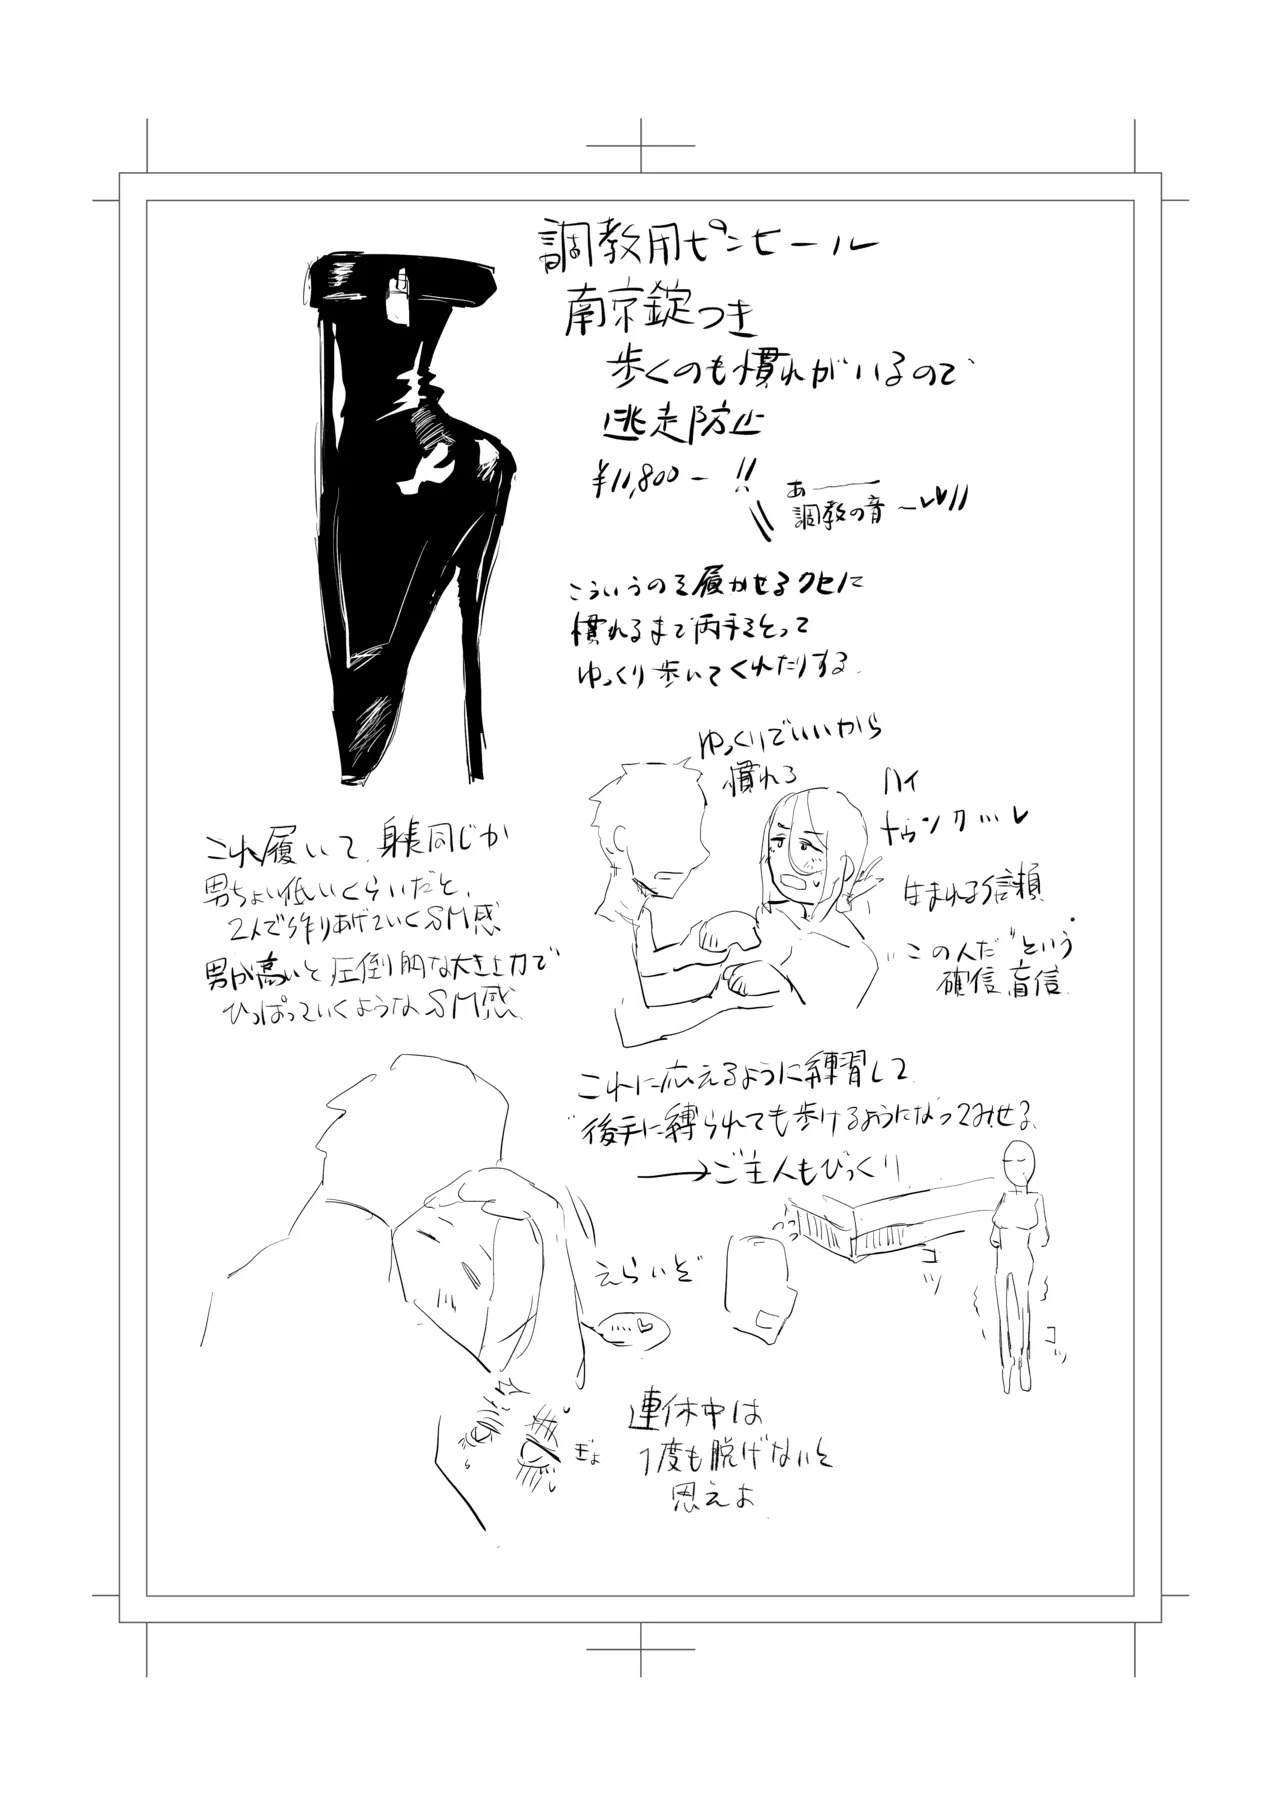 調教用ピンヒール
南京錠つき
歩くのも慣れがいるので
逃走防止
¥11,800-!!
あ――
調教の音~♥♥!!
こういうのを履かせるクセに
慣れるまで両手をとって
ゆっくり歩いてくれたりする.
ゆっくりでいいから
慣れろ
ハイ
生まれる信頼
"この人だ"という
確信、盲信.
これ履いて、身長同じか
男ちょい低いくらいだと、
2人で作りあげていくSM感
男が高いと圧倒的な大きと力で
ひっぱっていくようなSM感
これに応えるように練習して
後手に縛られても歩けるようになってみせる
→ご主人もびっくり
コッ
コッ
えらいぞ
....♡
ぎょ
連休中は
1度も脱げないと
思えよ